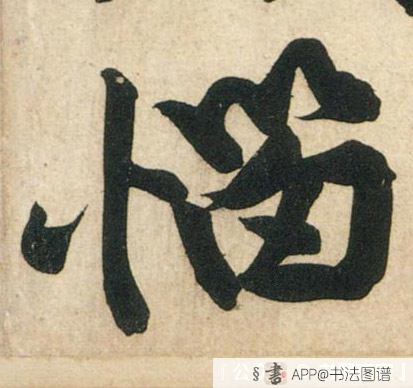 惱
「公
§書 APP@书法图谱